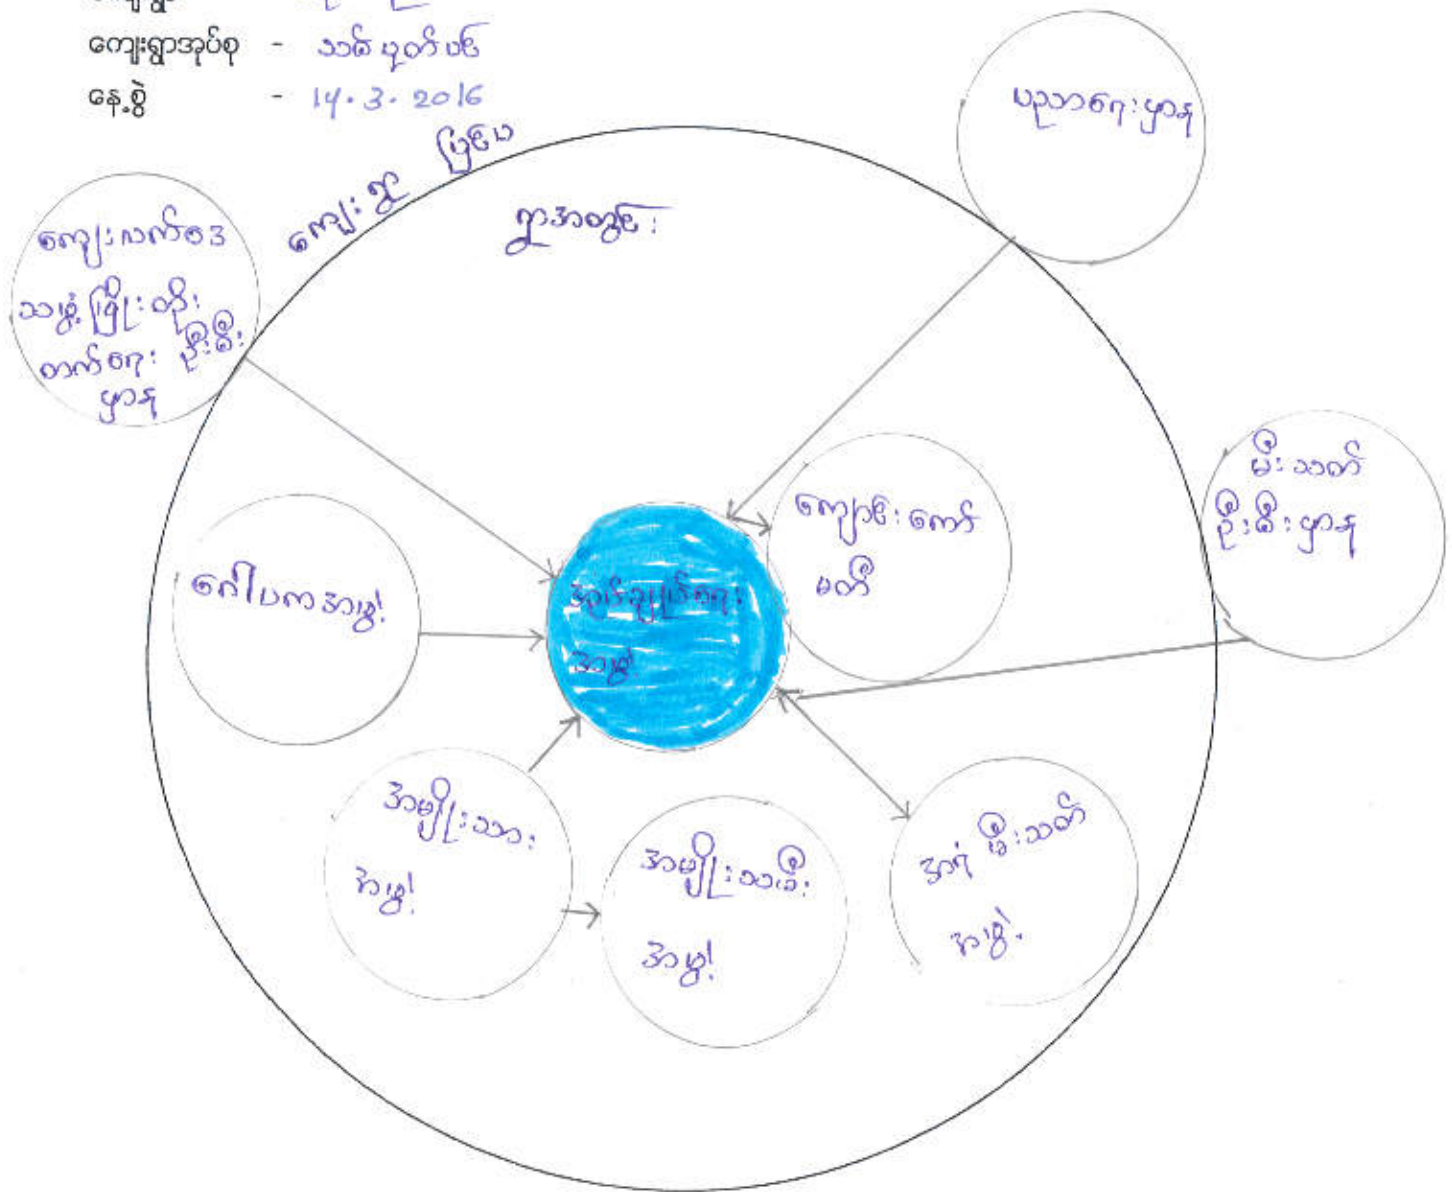 ကျေးရွာအုပ်စု - သစ်ပုတ်ပင်
နေ့စွဲ - 14.3.2016
ပညာရေးဌာန
ကျေးရွာ ပြင်ပ
ရွာအတွင်း
ကျေးလက်ဒေ
သဖွံ့ဖြိုးတိုး
တက်ရေး ဦးစီး
ဌာန
မီးသတ်
ဦးစီးဌာန
ကျောင်းကော်
မတီ
ဂေါပကအဖွဲ့
အုပ်ချုပ်ရေး
အဖွဲ့
အမျိုးသား
အဖွဲ့
အမျိုးသမီး
အဖွဲ့
အရံ မီးသတ်
အဖွဲ့